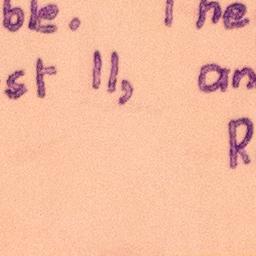 ble. The
st 11, an
R